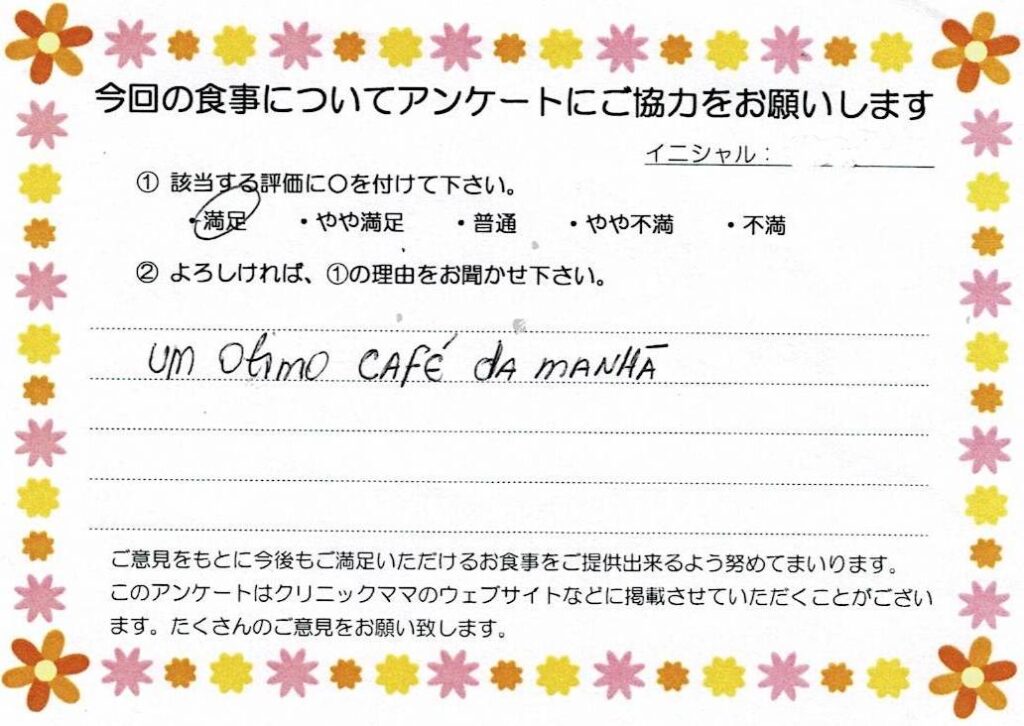 今回の食事についてアンケートにご協力をお願いします
イニシャル：
① 該当する評価に〇を付けて下さい。
・満足 ・やや満足 ・普通 ・やや不満 ・不満
② よろしければ、①の理由をお聞かせ下さい。
UM Otimo CAFÉ dA MANHÃ
ご意見をもとに今後もご満足いただけるお食事をご提供出来るよう努めてまいります。
このアンケートはクリニックママのウェブサイトなどに掲載させていただくことがござい
ます。たくさんのご意見をお願い致します。